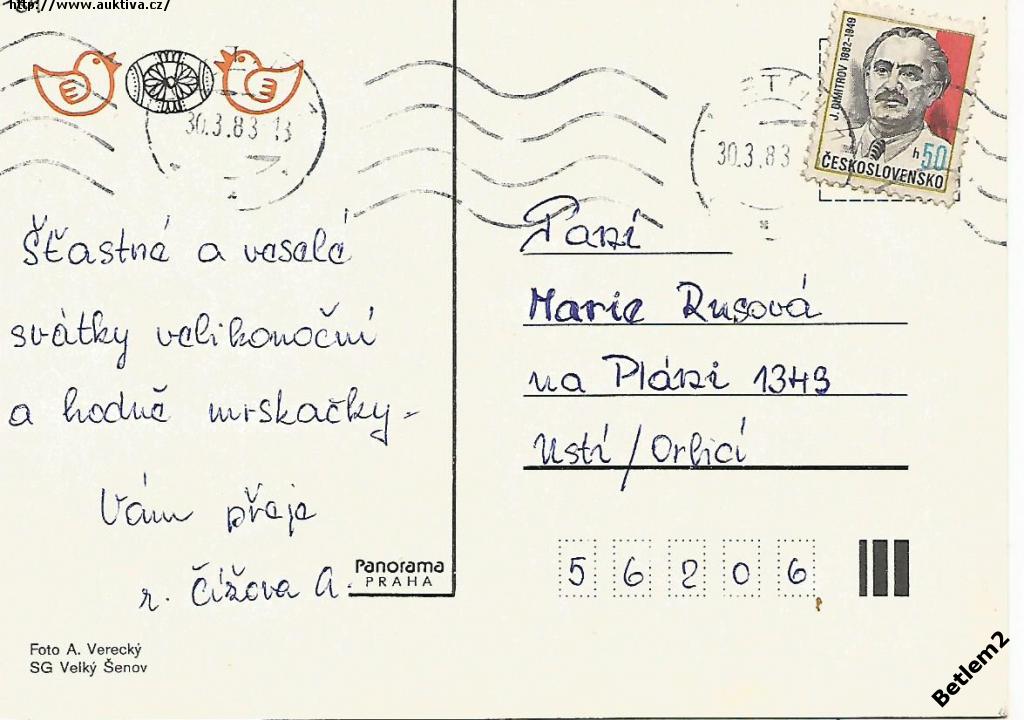 http://www.auktiva.cz/
30.3.83 13
30.3.83
J. DIMITROV 1882-1949
h 50
ČESKOSLOVENSKO
Šťastné a veselé
svátky velikonoční
a hodně mrskačky -
Vám přeje
r. Čížova A.
Paní
Marie Rusová
na Pláni 1349
Ustí / Orlicí
5 6 2 0 6
Panorama
PRAHA
Foto A. Verecký
SG Velký Šenov
Betlem2